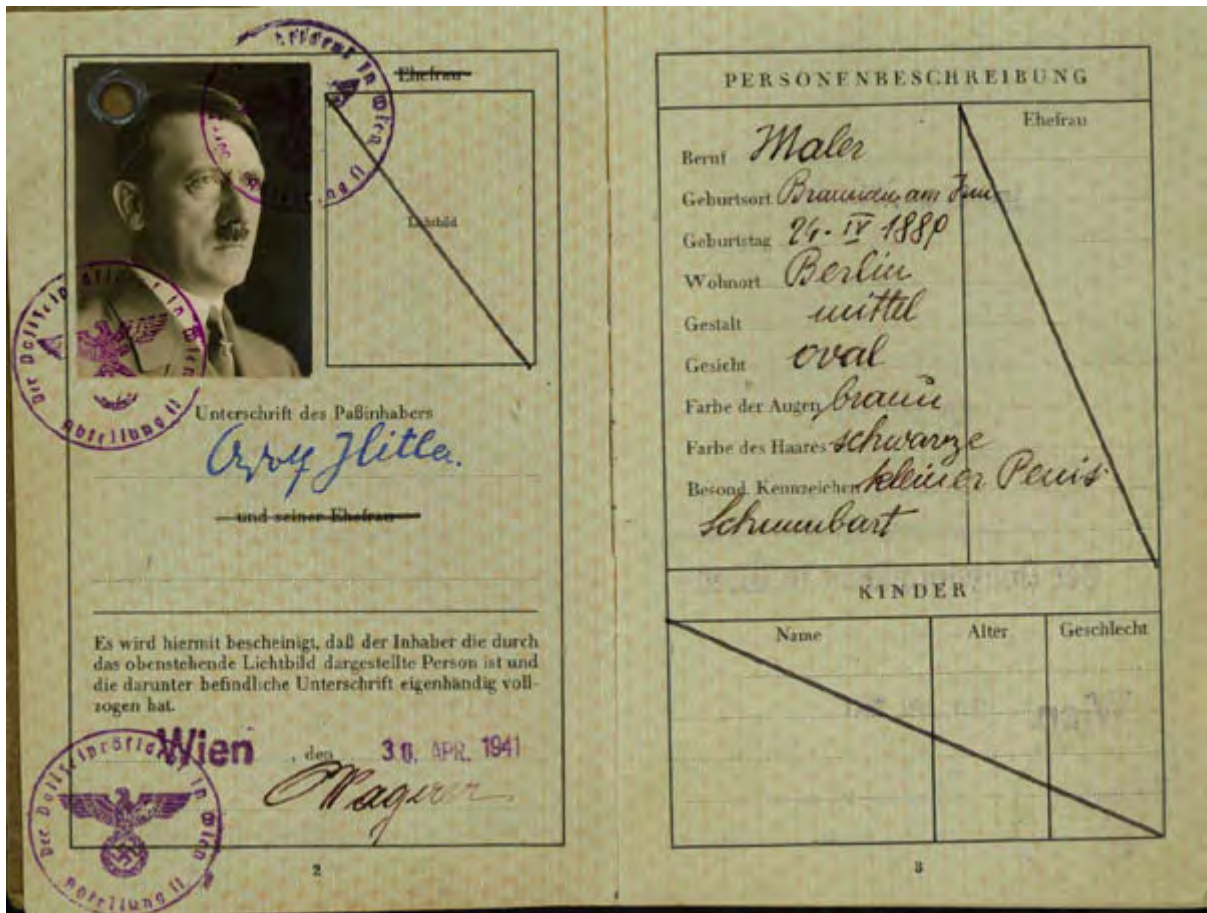 Ehefrau
Lichtbild
Unterschrift des Paßinhabers
Adolf Hitler.
und seiner Ehefrau
Es wird hiermit bescheinigt, daß der Inhaber die durch
das obenstehende Lichtbild dargestellte Person ist und
die darunter befindliche Unterschrift eigenhändig voll-
zogen hat.
Wien, den 30. APR. 1941
Der Polizeipräsident in Wien
Abteilung II
2
PERSONENBESCHREIBUNG
Ehefrau
Beruf Maler
Geburtsort Braunau am Inn
Geburtstag IV 188
Wohnort Berlin
Gestalt mittel
Gesicht oval
Farbe der Augen braun
Farbe des Haares schwarze
Besond. Kennzeichen kleiner Penis
KINDER
Name Alter Geschlecht
3